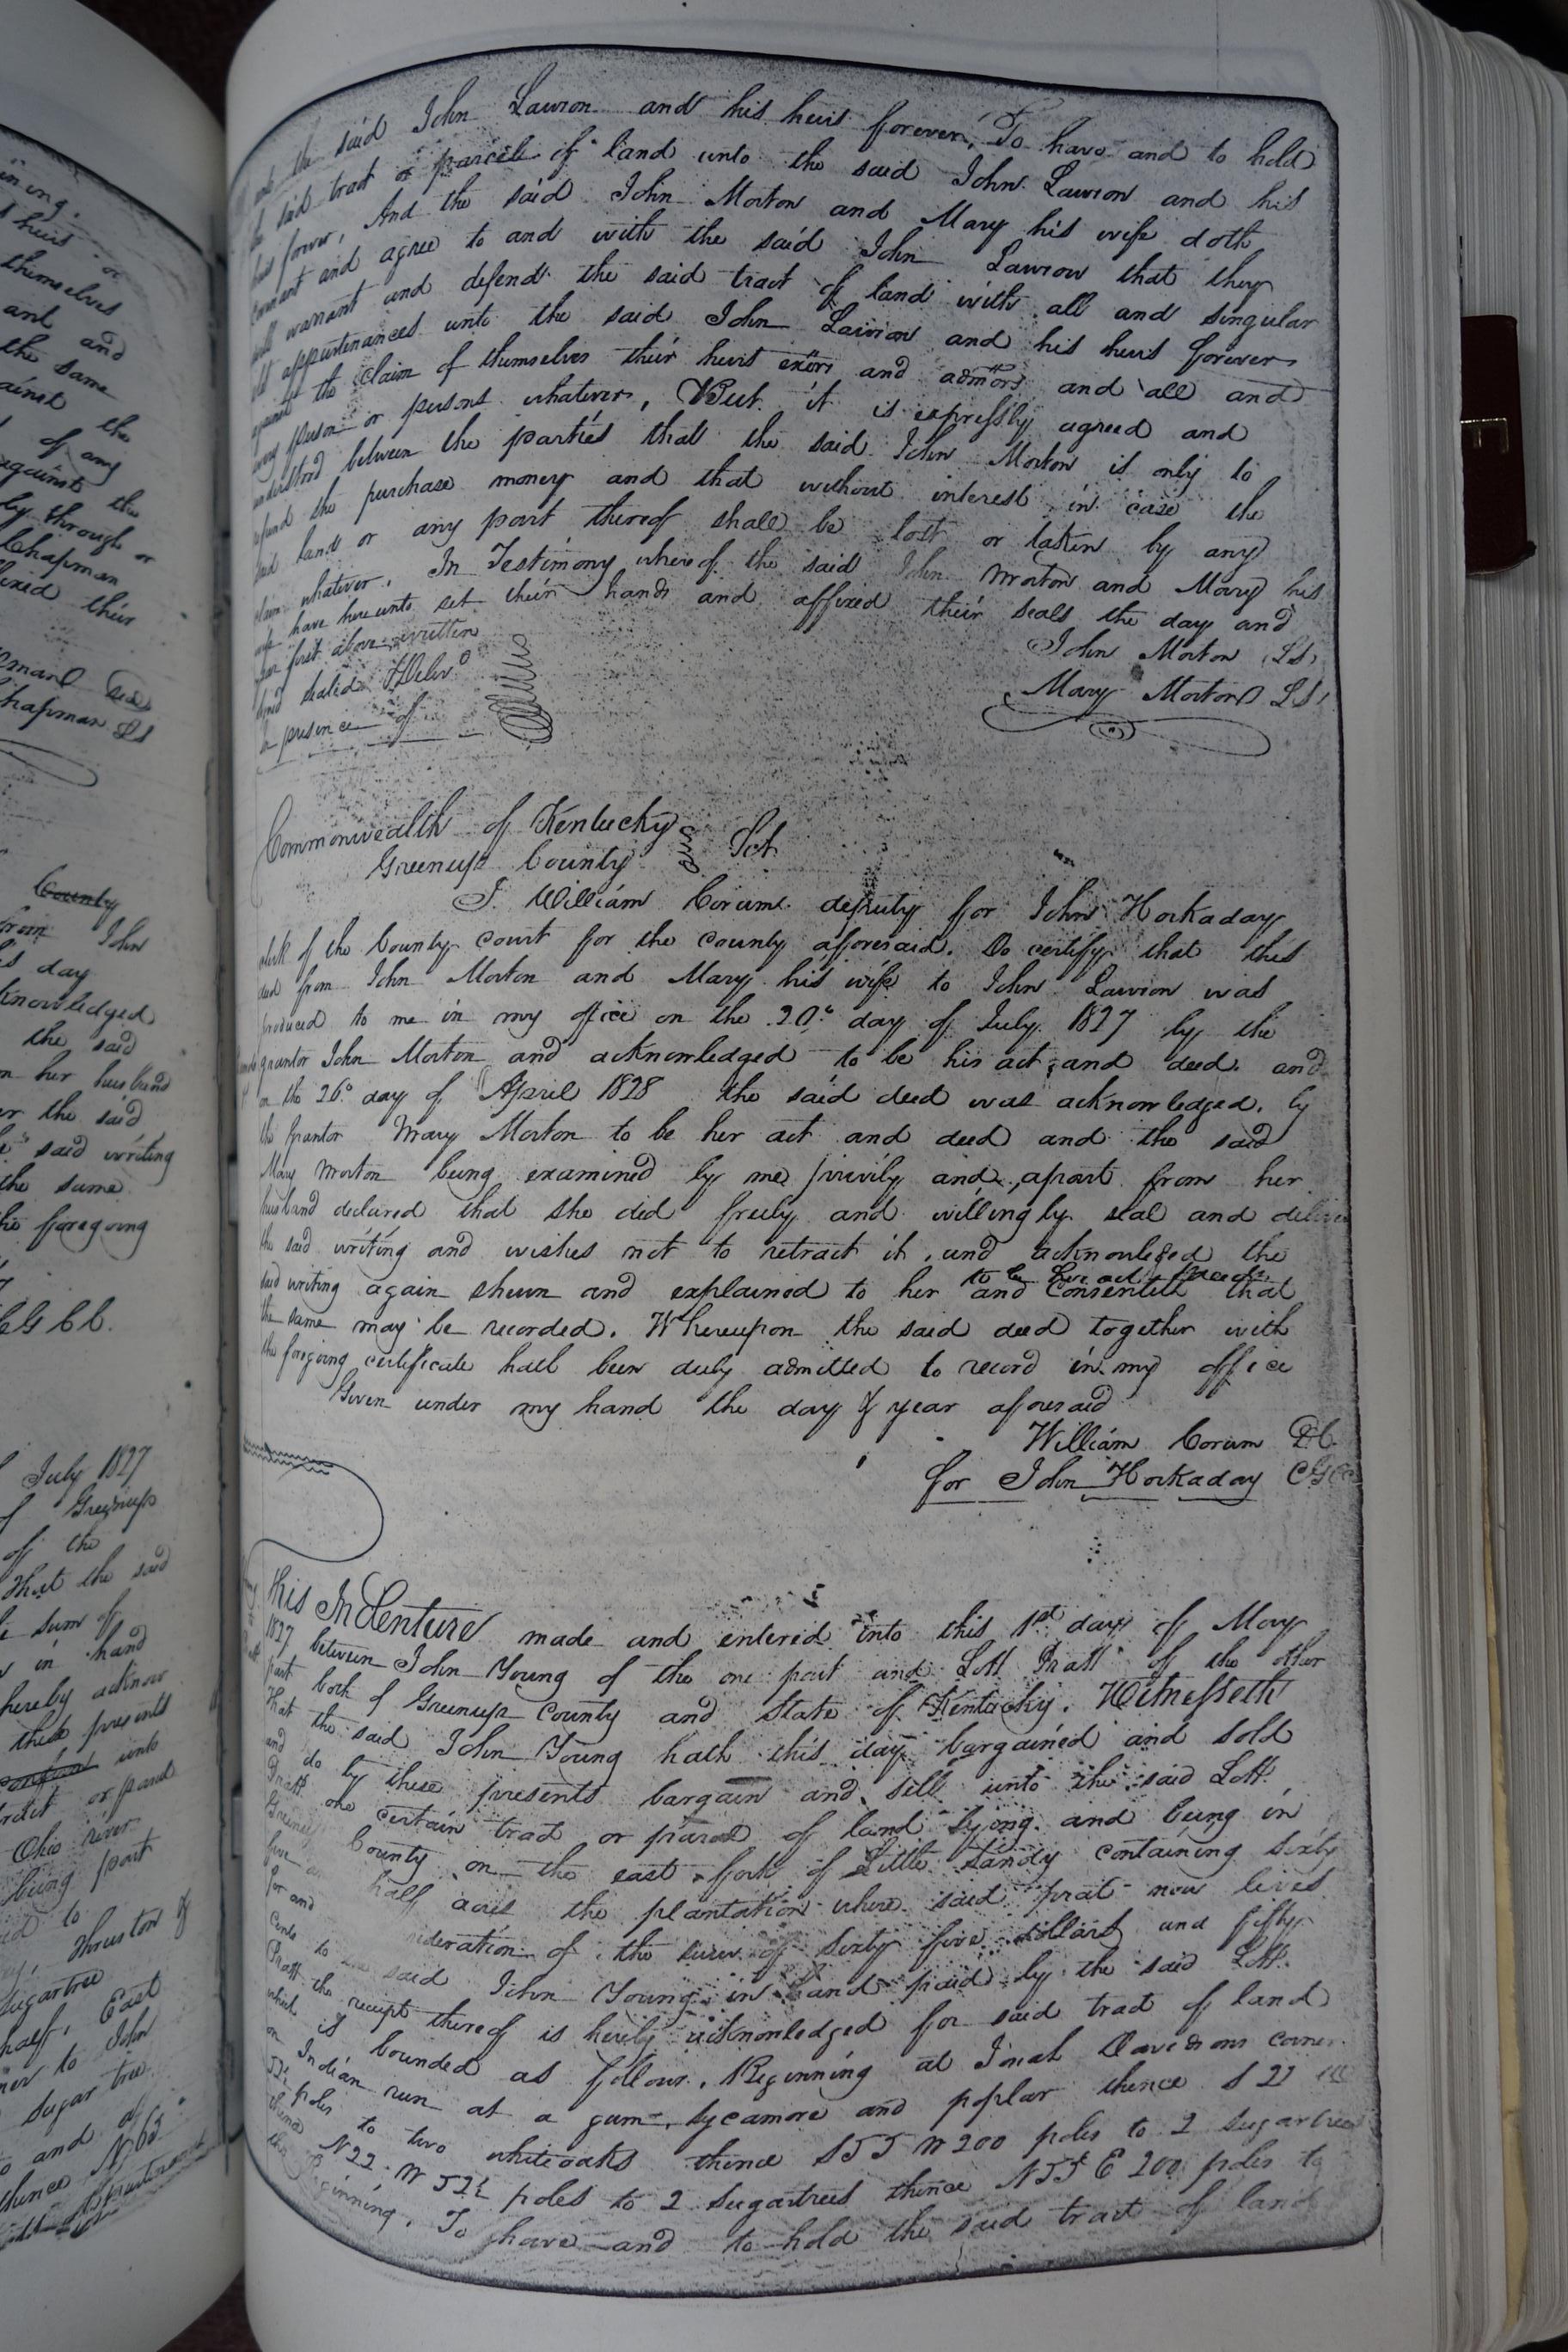 ining.
s heirs or
themselves
and and
the same
ainst the
of any
against the
ly through or
Chapman
fixed their
Chapman LS
County
from John
is day
cknowledged
the said
m her husband
er the said
said writing
the same
he foregoing
July 1827
of Greenup
of the
That the said
e sum of
in hand
hereby acknow
these presents
unto
tract or parcel
Ohio river
being part
to
Thruston &
sugartree
half, East
ner to John
sugar tree
and of
thence N 63
the said John Lawson and his heirs forever, To have and to hold
the said tract or parcel of land unto the said John Lawson and his
heirs forever, And the said John Morton and Mary his wife doth
covenant and agree to and with the said John Lawson that they
will warrant and defend the said tract of land with all and singular
its appurtenances unto the said John Lawson and his heirs forever
against the claim of themselves their heirs exors and admors and all and
every person or persons whatever, But it is expressly agreed and
understood between the parties that the said John Morton is only to
refund the purchase money and that without interest in case the
said land or any part thereof shall be lost or taken by any
claim whatever. In Testimony whereof the said John Morton and Mary his
wife have hereunto set their hands and affixed their seals the day and
year first above written
John Morton (LS)
signed sealed & Delivd
Mary Morton LS
in presence of
Commonwealth of Kentucky
Greenup County Sct
I William Corum deputy for John Hockaday
clerk of the County court for the county afforesaid. Do certify that this
deed from John Morton and Mary his wife to John Lawson was
produced to me in my office on the 20th day of July 1827 by the
grantor John Morton and acknowledged to be his act and deed. and
on the 26th day of April 1828 the said deed was acknowledged. by
the grantor Mary Morton to be her act and deed and the said
Mary Morton being examined by me privily and apart from her
husband declared that she did freely and willingly seal and deliver
the said writing and wishes not to retract it, and acknowledged the
said writing again shewn and explained to her to be her act & deed and consented that
the same may be recorded. Whereupon the said deed together with
the foregoing certificate hath been duly admitted to record in my office
Given under my hand the day & year aforesaid
William Corum DC
for John Hockaday CGCC
This Indenture made and entered into this 1st day of May
1827 between John Young of the one part and Lott Pratt of the other
part both of Greenup County and State of Kentucky. Witnesseth
That the said John Young hath this day bargained and sold
and do by these presents bargain and sell unto the said Lott
Pratt one certain tract or parcel of land lying and being in
Greenup County on the east fork of Little Sandy containing sixty
five half acres the plantation where said prat now lives
for and ideration of the sum of sixty five dollars and fifty
Cents to said John Young in hand paid by the said Lott
Pratt the receipt thereof is hereby acknowledged for said tract of land
which is bounded as follows. Beginning at Davidsons corner
on Indian run at a gum, sycamore and poplar thence S 22
52½ poles to two whiteoaks thence S 55 W 200 poles to 2 sugartrees
thence N 22 W 52½ poles to 2 sugartrees thence N 55 E 200 poles to
the Beginning. To have and to hold the said tract of land